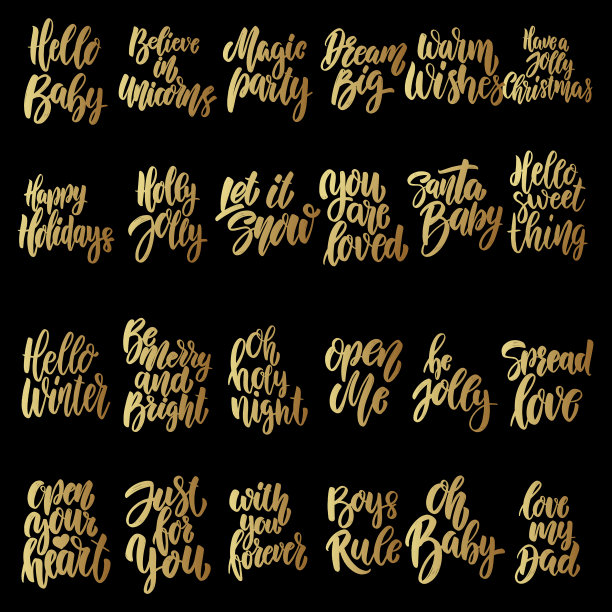 Hello
Baby
Believe
in
Unicorns
Magic
Party
Dream
Big
Warm
Wishes
Have a
Jolly
Christmas
Happy
Holidays
Holly
Jolly
Let it
Snow
you
are
loved
Santa
Baby
Hello
sweet
thing
Hello
Winter
Be
Merry
and
Bright
Oh
holy
night
open
Me
be
Jolly
Spread
love
Open
your
heart
Just
for
You
with
you
forever
Boys
Rule
Oh
Baby
love
my
Dad